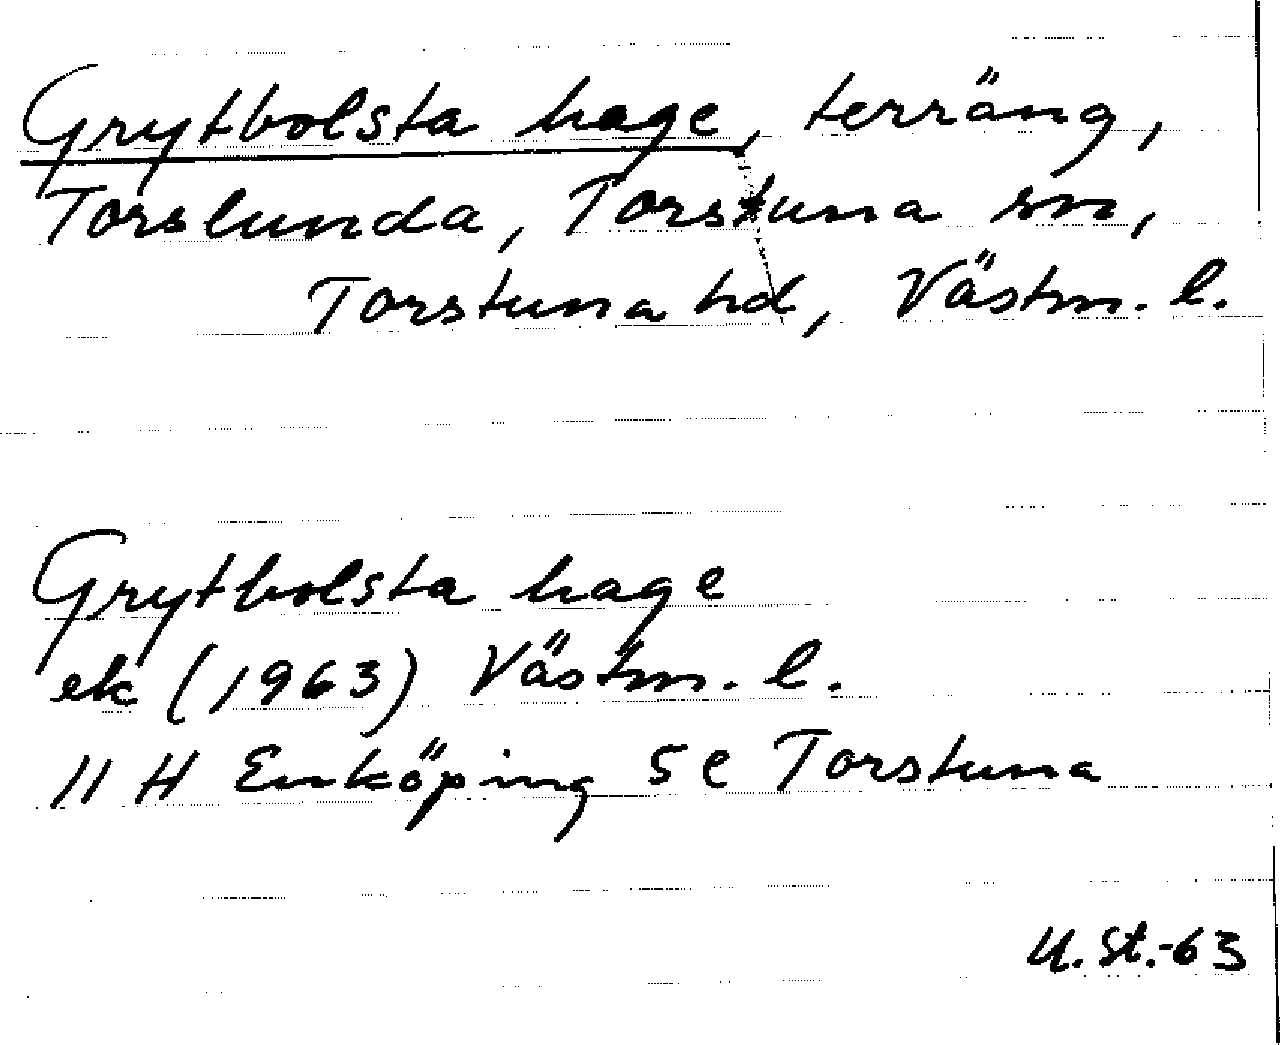 Grytbolsta hage, terräng,
Torslunda, Torstuna sn,
Torstuna hd, Västm. l.
Grytbolsta hage
ek (1963) Västm. l.
11 H Enköping 5 e Torstuna
U. St.-63